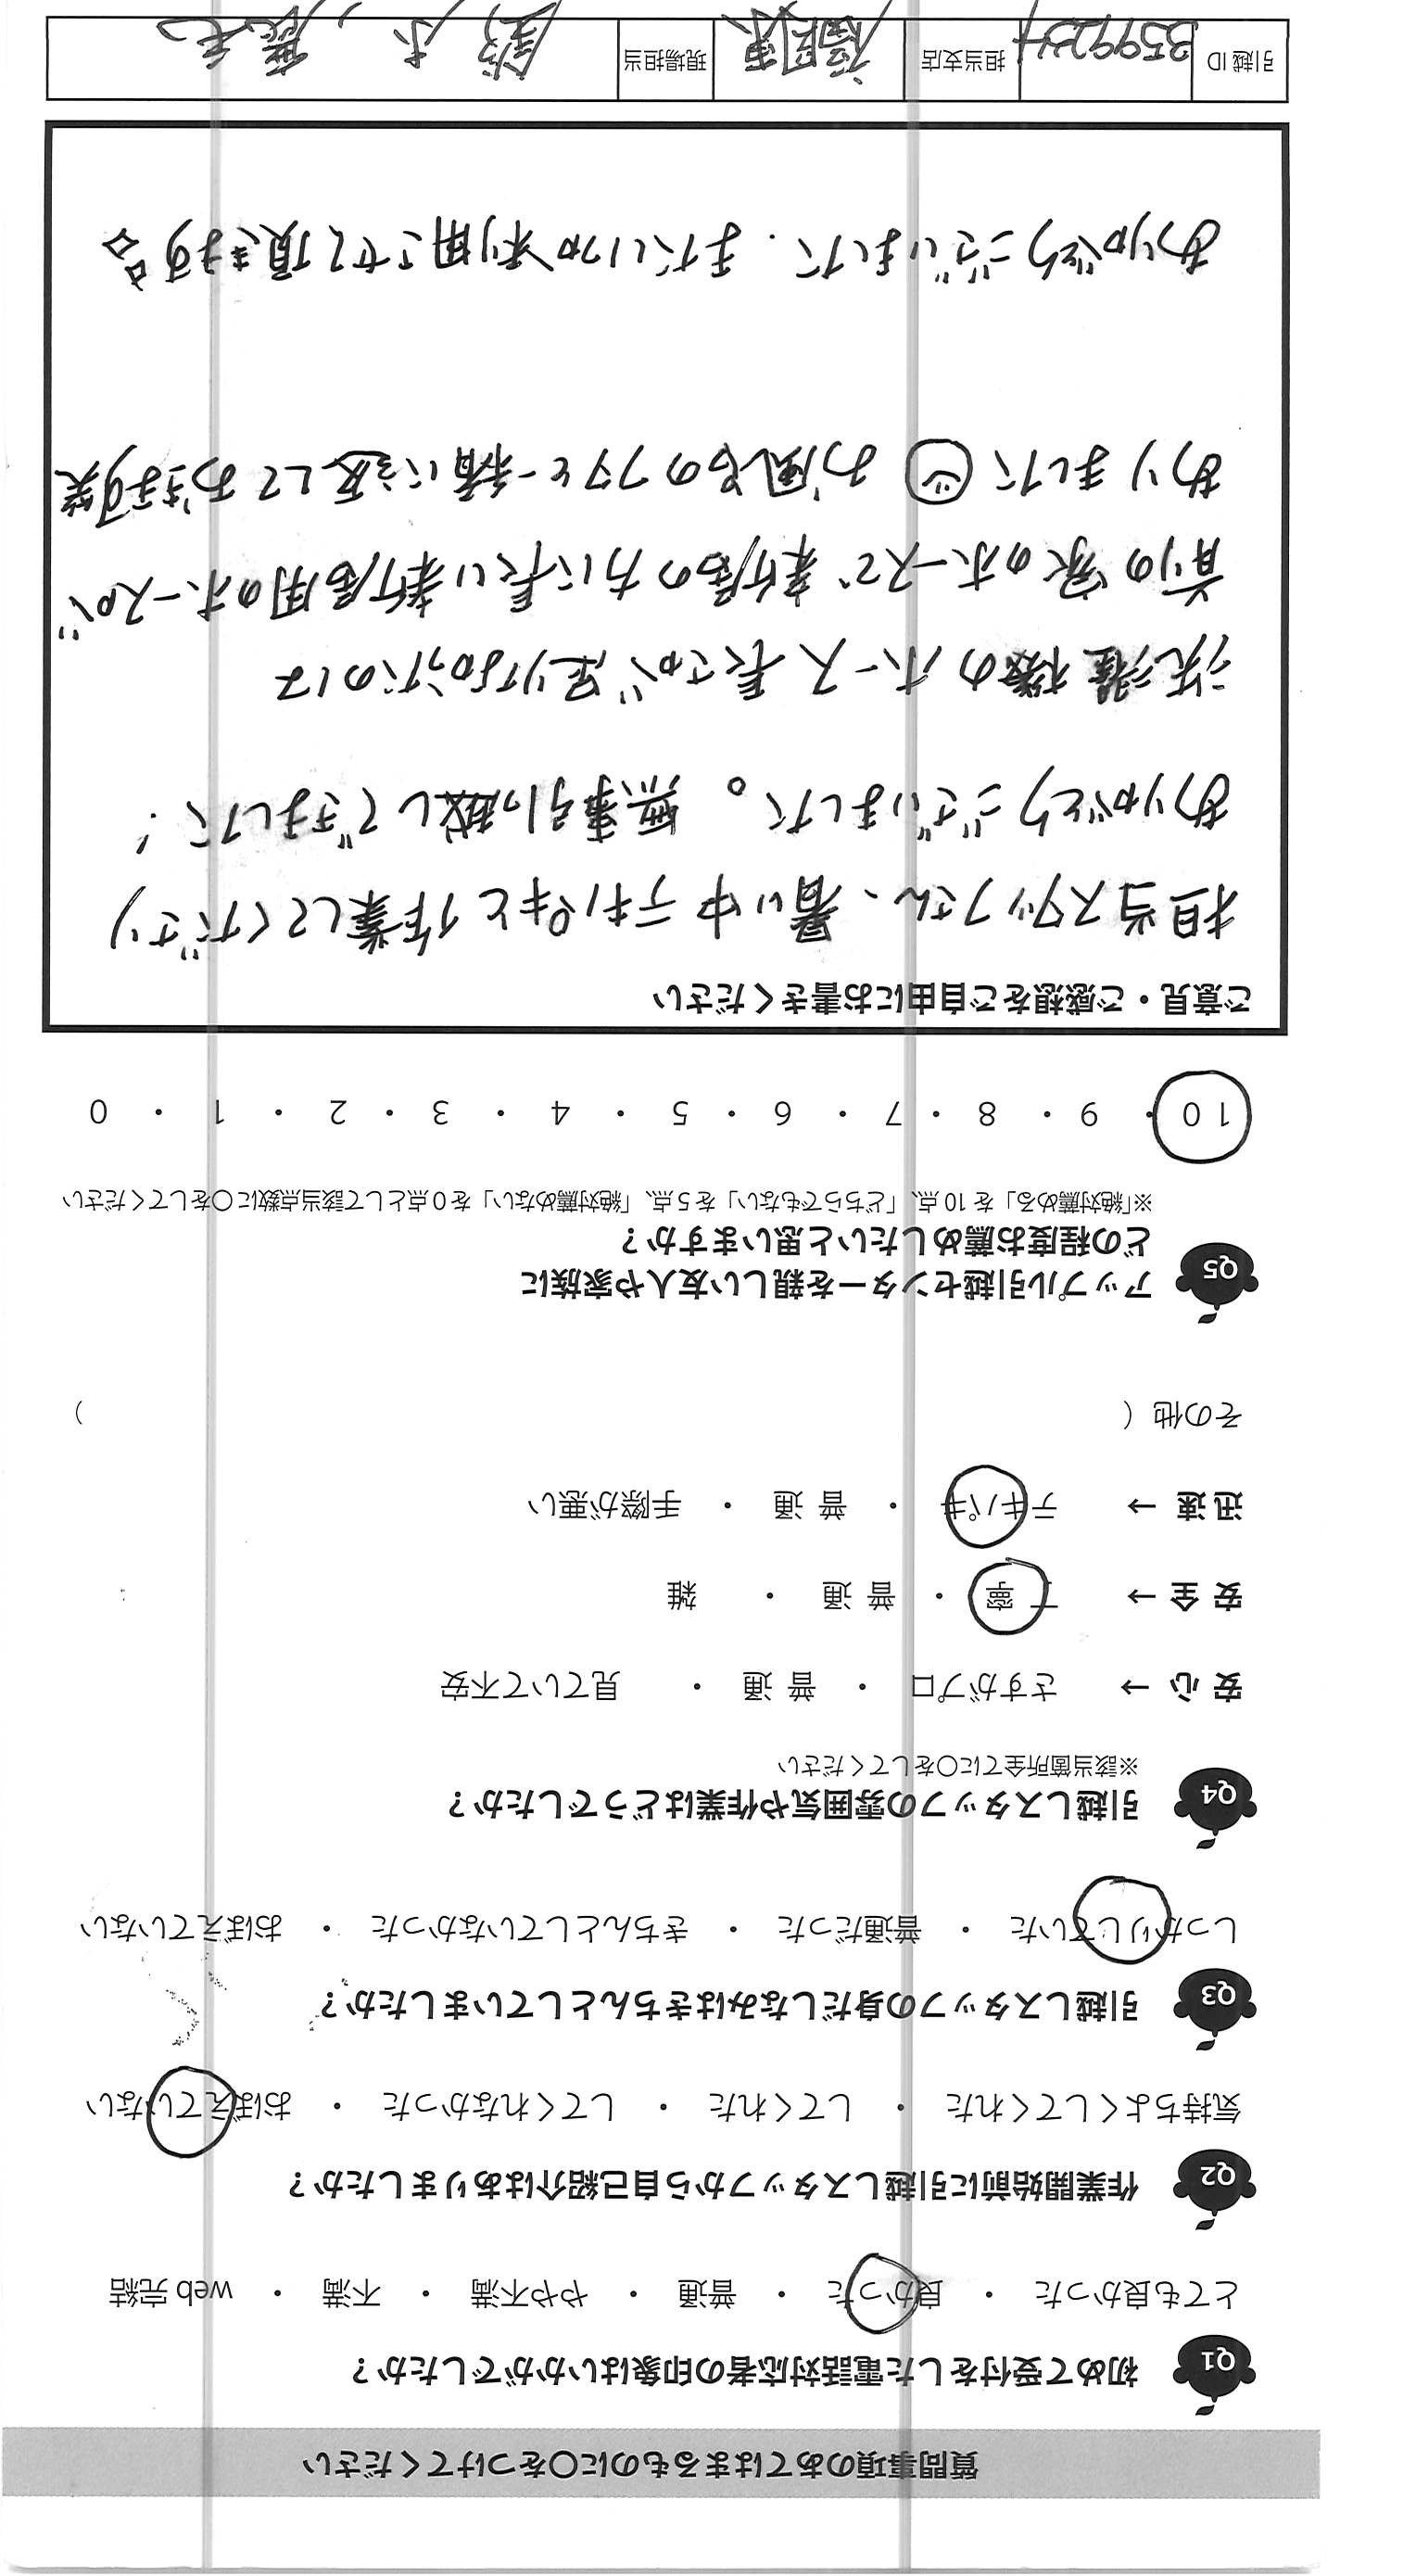 質問事項のあてはまるものに〇をつけてください
Q1 初めて受付をした電話対応者の印象はいかがでしたか？
とても良かった ・ 良かった ・ 普通 ・ やや不満 ・ 不満 ・ web 完結
Q2 作業開始前に引越しスタッフから自己紹介はありましたか？
気持ちよくしてくれた ・ してくれた ・ してくれなかった ・ おぼえていない
Q3 引越しスタッフの身だしなみはきちんとしていましたか？
しっかりしていた ・ 普通だった ・ きちんとしていなかった ・ おぼえていない
Q4 引越しスタッフの雰囲気や作業はどうでしたか？
※該当箇所全てに〇をしてください
安 心 → さすがプロ ・ 普 通 ・ 見ていて不安
安 全 → 丁 寧 ・ 普 通 ・ 雑
迅 速 → テキパキ ・ 普 通 ・ 手際が悪い
その他（ ）
Q5 アップル引越センターを親しい友人や家族に
どの程度お薦めしたいと思いますか？
※「絶対薦める」を 10 点、「どちらでもない」を 5 点、「絶対薦めない」を 0 点として該当点数に〇をしてください
10 ・ 9 ・ 8 ・ 7 ・ 6 ・ 5 ・ 4 ・ 3 ・ 2 ・ 1 ・ 0
ご意見・ご感想をご自由にお書きください
担当スタッフさん、暑い中テキパキと作業してくださり
ありがとうございました。無事引っ越しできました！
洗濯機のホース長さが足りなかったのは
前の家のホースで新居の方に長い新居用のホースが
ありました お風呂のフタと一緒に返しておきます笑
ありがとうございました．またいつか利用させて頂きます
引越 ID 3599234 担当支店 福岡東 現場担当 鈴木,